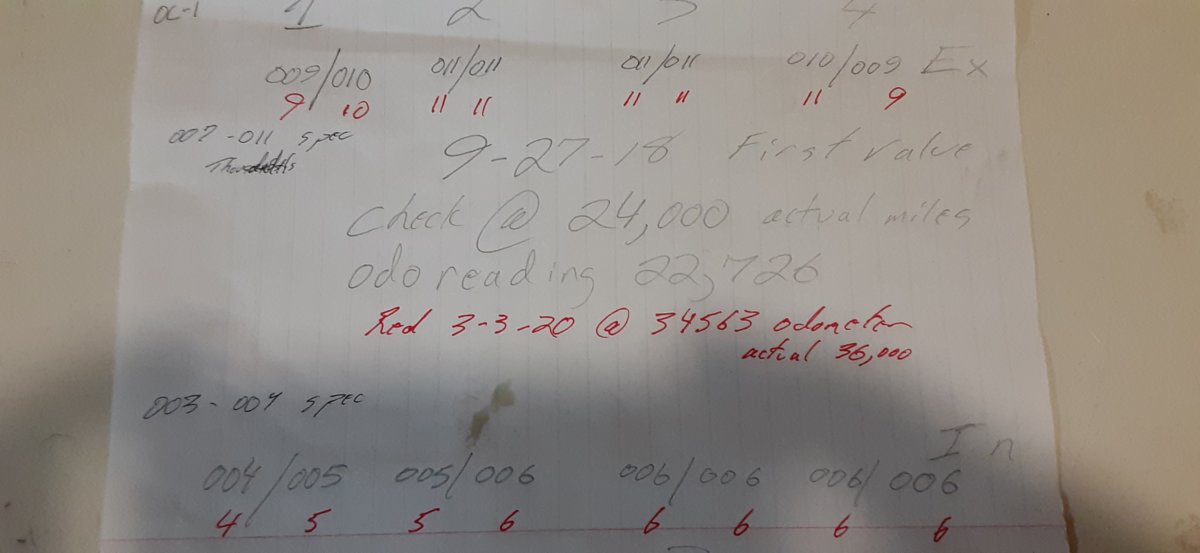 1 2 3 4
009/010 011/011 011/011 010/009 Ex
9 10 11 11 11 11 11 9
007-011 spec
9-27-18 First valve
check @ 24,000 actual miles
odo reading 22,726
Red 3-3-20 @ 34563 odometer
actual 36,000
003-007 spec
In
004/005 005/006 006/006 006/006
4 5 5 6 6 6 6 6